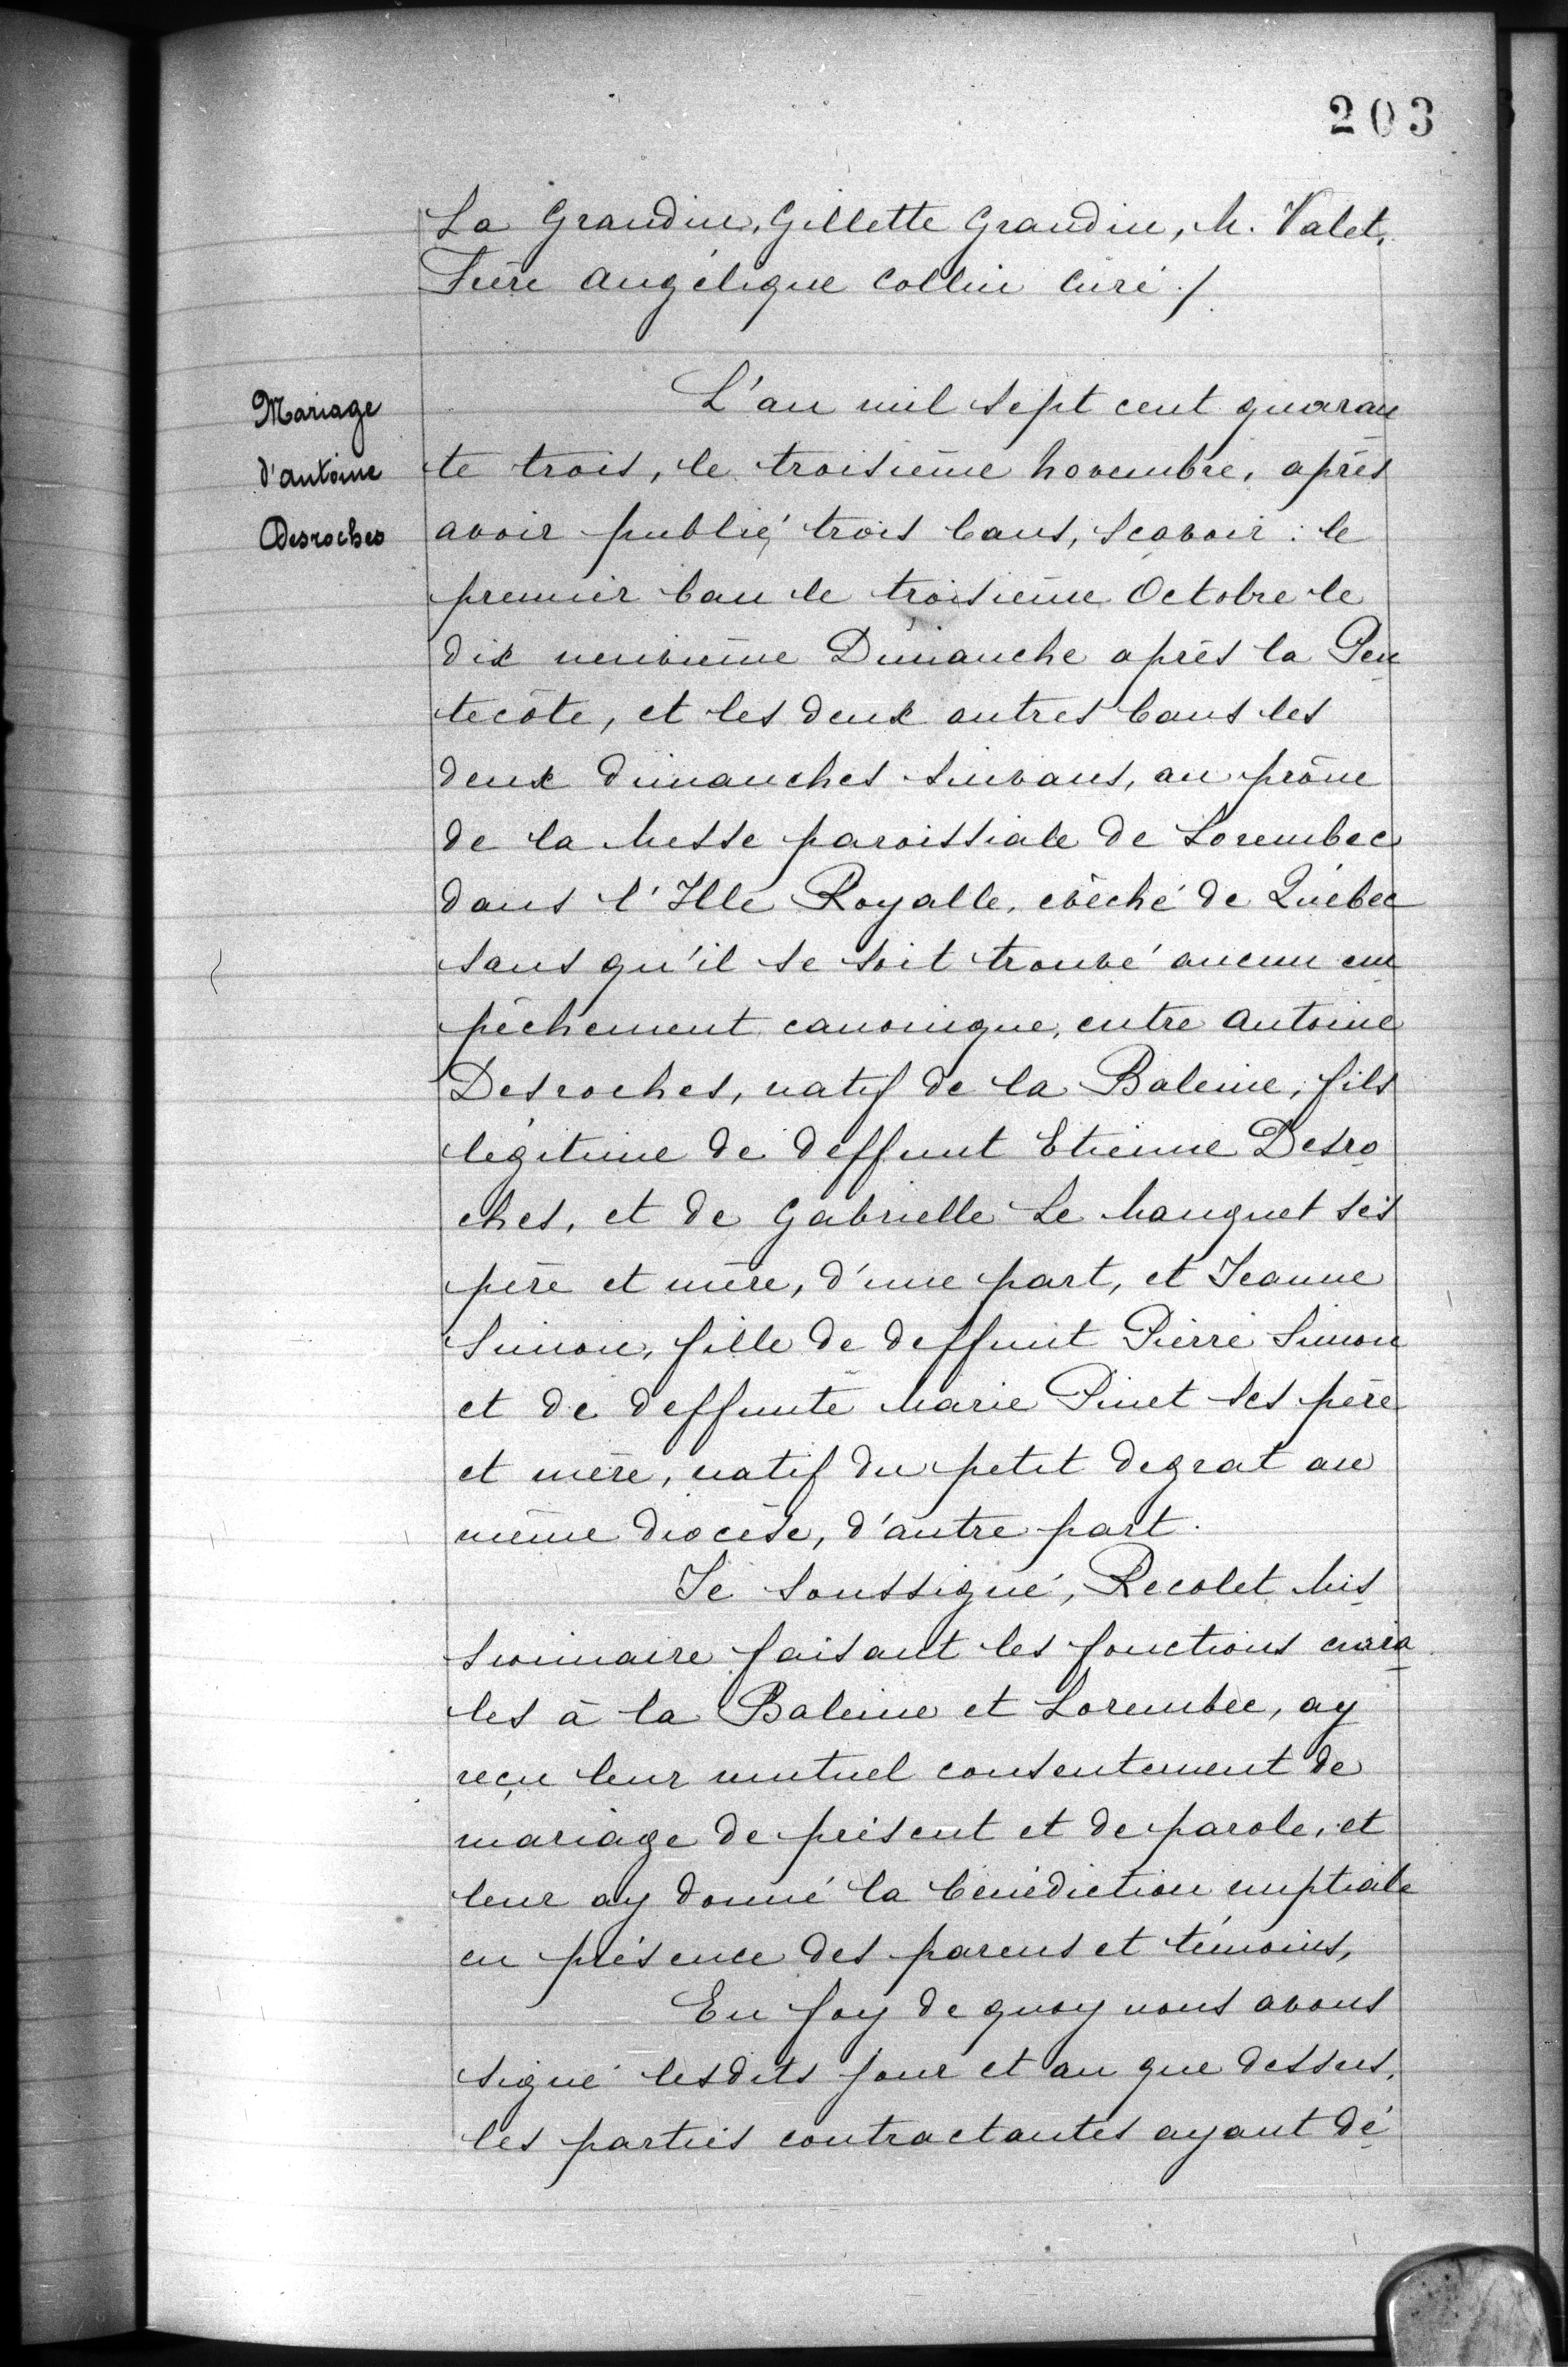 203
La Grandin, Gillette Grandin, M. Valet,
Frère Angélique Collin Curé ./.
Mariage
d'antoine
Desroches
L'an mil sept cent quaran
te trois, le troisième Novembre, après
avoir publié trois bans, sçavoir : le
premier ban le troisième Octobre le
dix neuvième Dimanche après la Pen
tecôte, et les deux autres bans les
deux dimanches suivans, au prône
de la Messe paroissiale de Lorembec
dans l'Ille Royalle, évêché de Québec
sans qu'il se soit trouvé aucun em
pêchement canonique, entre Antoine
Desroches, natif de la Baleine, fils
légitime de deffunt Etienne Desro
ches, et de Gabrielle Le Manquet ses
père et mère, d'une part, et Jeanne
Simon, fille de deffunt Pierre Simon
et de deffunte Marie Pinet ses père
et mère, natif du petit degrat au
même diocèse, d'autre part.
Je soussigné, Recolet Mis
sionnaire faisant les fonctions curia
les à la Baleine et Lorembec, ay
reçu leur mutuel consentement de
mariage de présent et de parole, et
leur ay donné la bénédiction nuptiale
en présence des parens et témoins,
En foy de quoy nous avons
signé lesdits jour et an que dessus,
les parties contractantes ayant dé